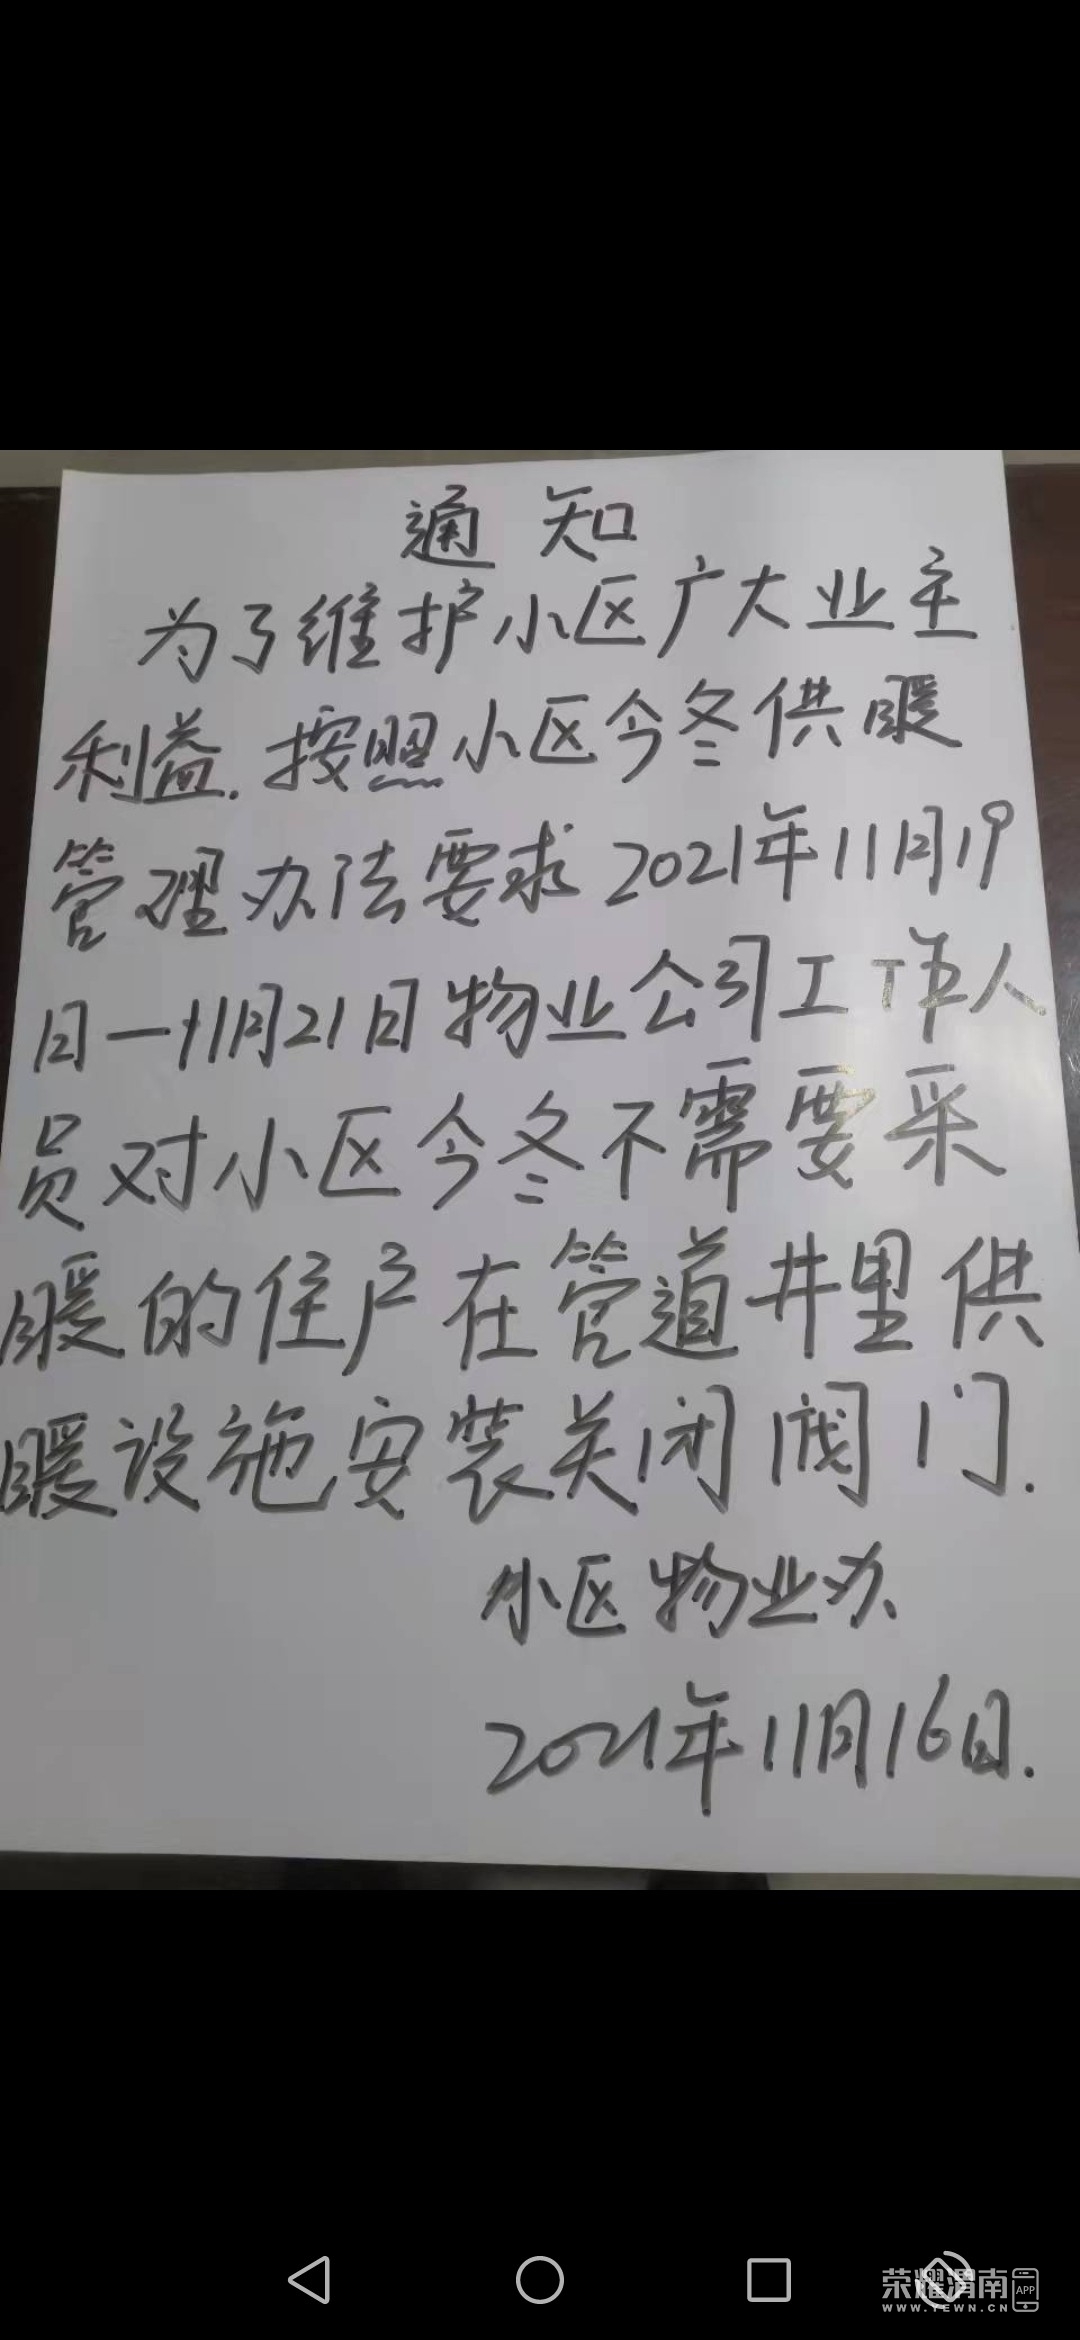 通知
为了维护小区广大业主
利益.按照小区今冬供暖
管理办法要求2021年11月19
日—11月21日物业公司工作人
员对小区今冬不需要采
暖的住户在管道井里供
暖设施安装关闭阀门.
小区物业办
2021年11月16日.
荣耀渭南
APP
WWW.YEWN.CN